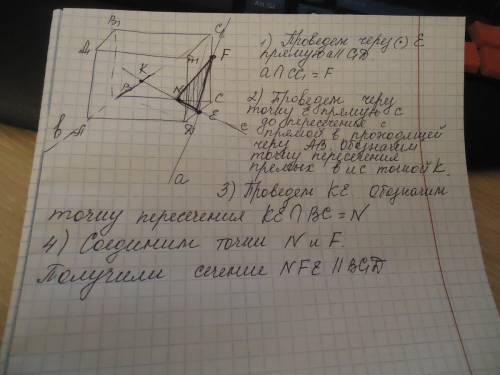 B₁ C₁
A₁ F
K
N C
A D E
в а с
1) Проведем через (·) E
прямую а || C₁D
a ∩ CC₁ = F
2) Проведем через
точку E прямую с
до пересечения с
прямой в проходящей
через AB. Обозначим
точку пересечения
прямых в и с точкой K.
3) Проведем KE. Обозначим
точку пересечения KE ∩ BC = N
4) Соединим точки N и F.
Получили сечение NFE || BC₁D